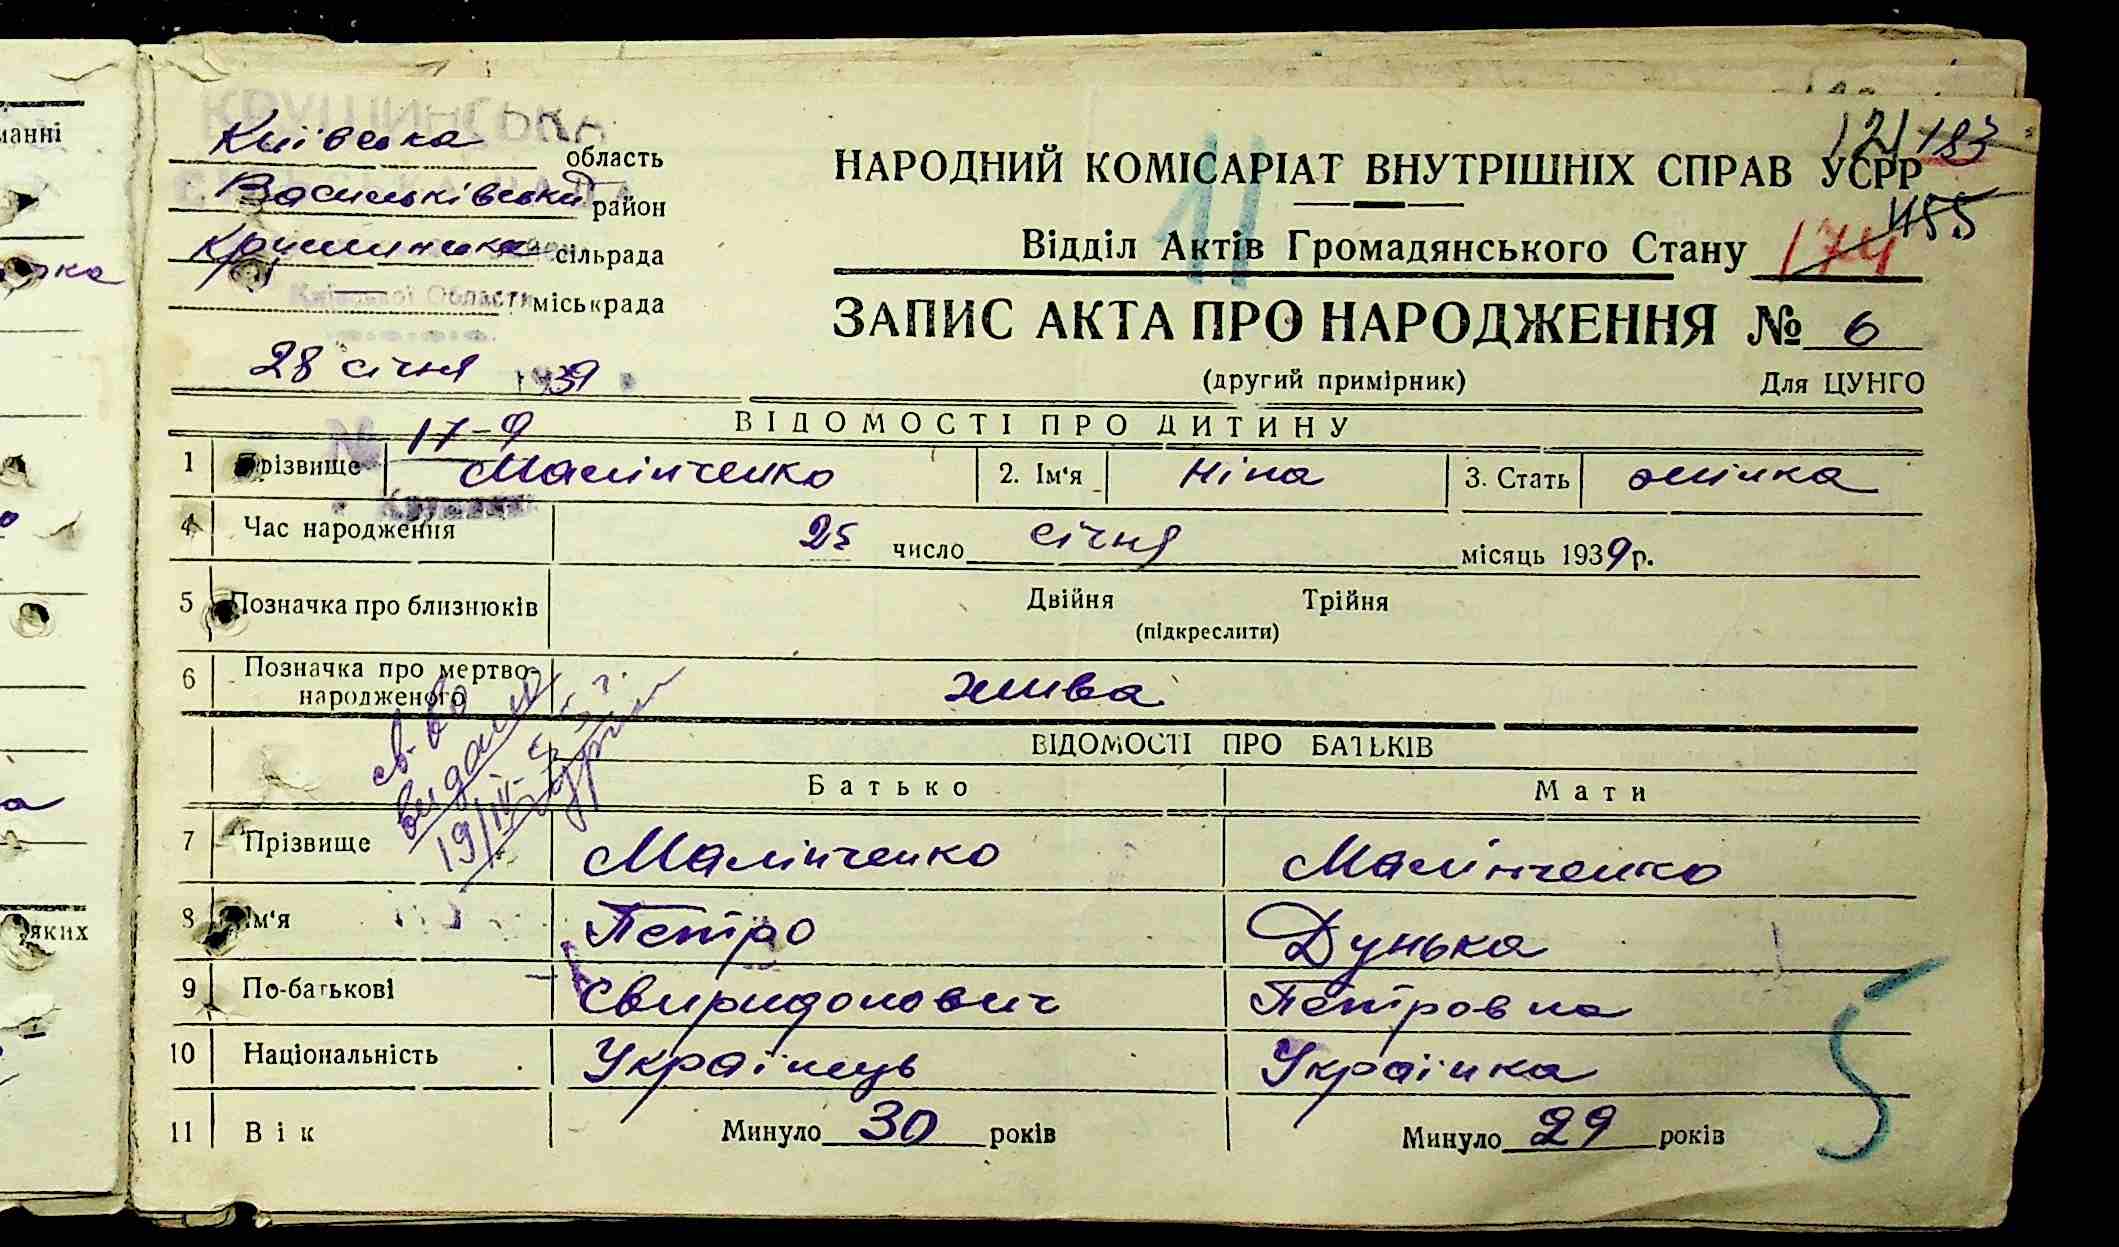 Київська область
Васильківський район
Крушинська сільрада
міськрада
28 січня 1939
№ 17-9
121 183
НАРОДНИЙ КОМІСАРІАТ ВНУТРІШНІХ СПРАВ УСРР
455
11
Відділ Актів Громадянського Стану 174
ЗАПИС АКТА ПРО НАРОДЖЕННЯ № 6
(другий примірник) Для ЦУНГО
ВІДОМОСТІ ПРО ДИТИНУ
1 Прізвище Малінченко 2. Ім'я Ніна 3. Стать жінка
4 Час народження 25 число січня місяць 1939 р.
5 Позначка про близнюків Двійня Трійня
(підкреслити)
6 Позначка про мертво-
народженого жива
св-во
видано
19/IV-
ВІДОМОСТІ ПРО БАТЬКІВ
Батько Мати
7 Прізвище Малінченко Малінченко
8 Ім'я Петро Дунька
9 По-батькові Свиридонович Петровна
10 Національність Українець Українка
11 Вік Минуло 30 років Минуло 29 років
5
манні
яких